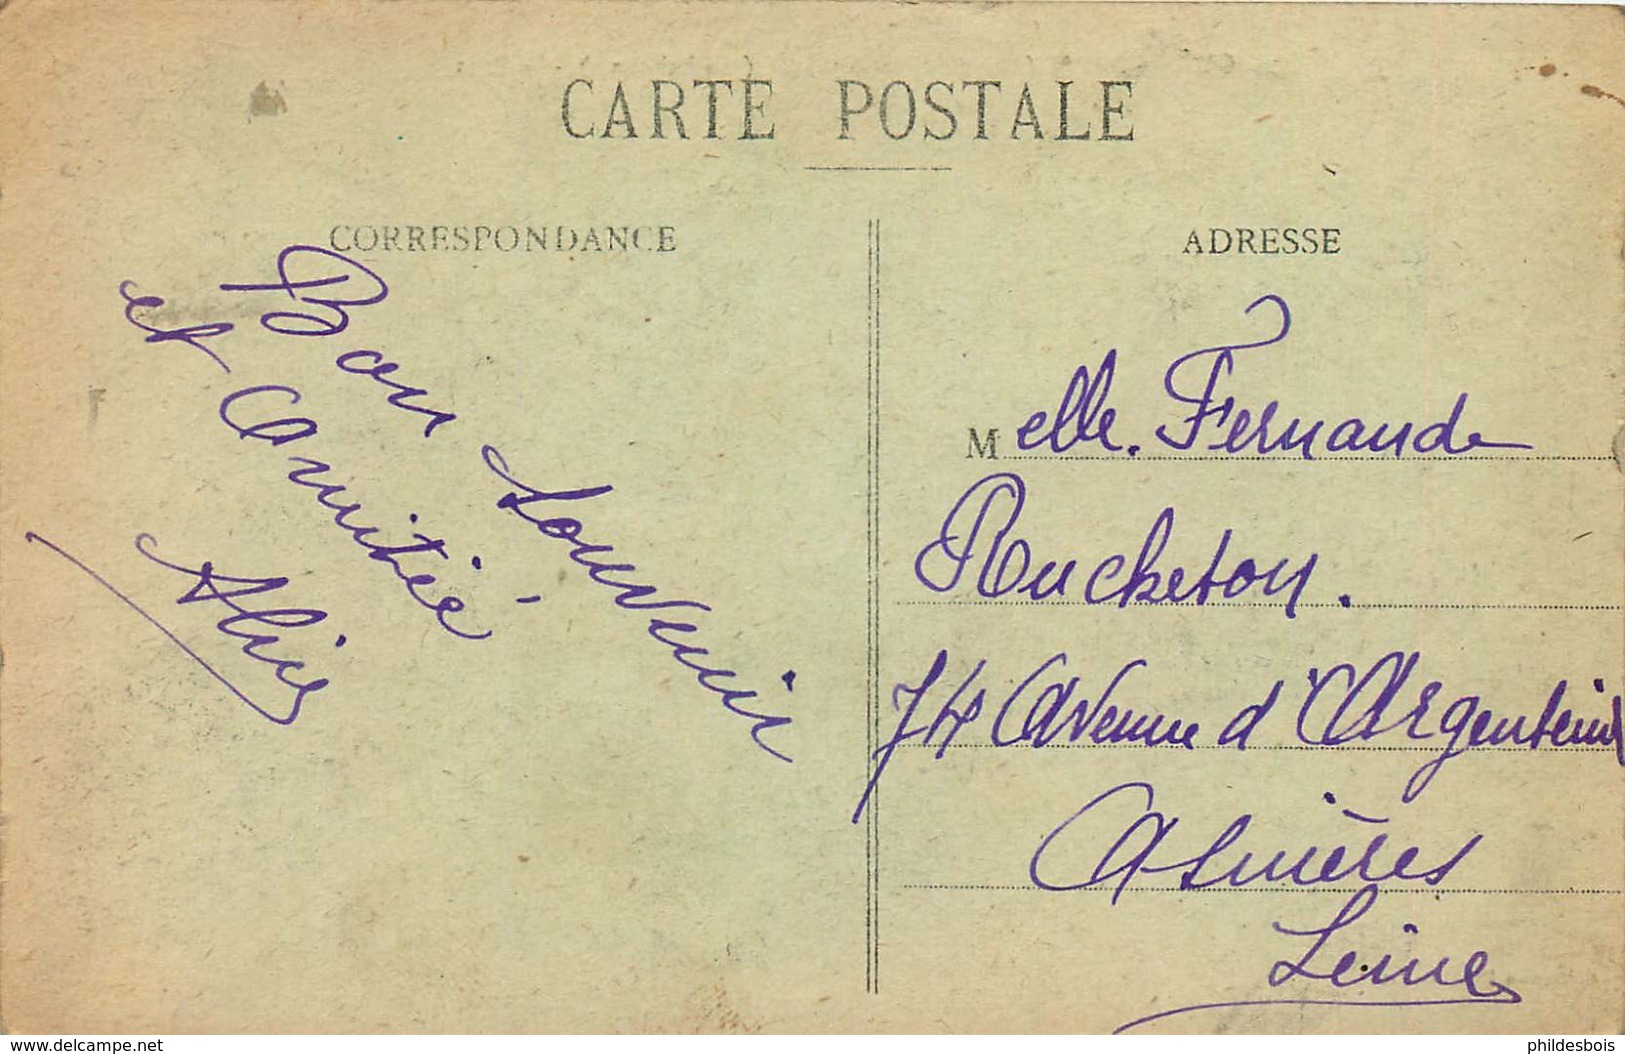 CARTE POSTALE
CORRESPONDANCE
Bon souvenir
et amitié
Alice
ADRESSE
Melle. Fernande
Rucheton.
74 Avenue d'Argenteuil
Asnières
Seine
www.delcampe.net
phildesbois